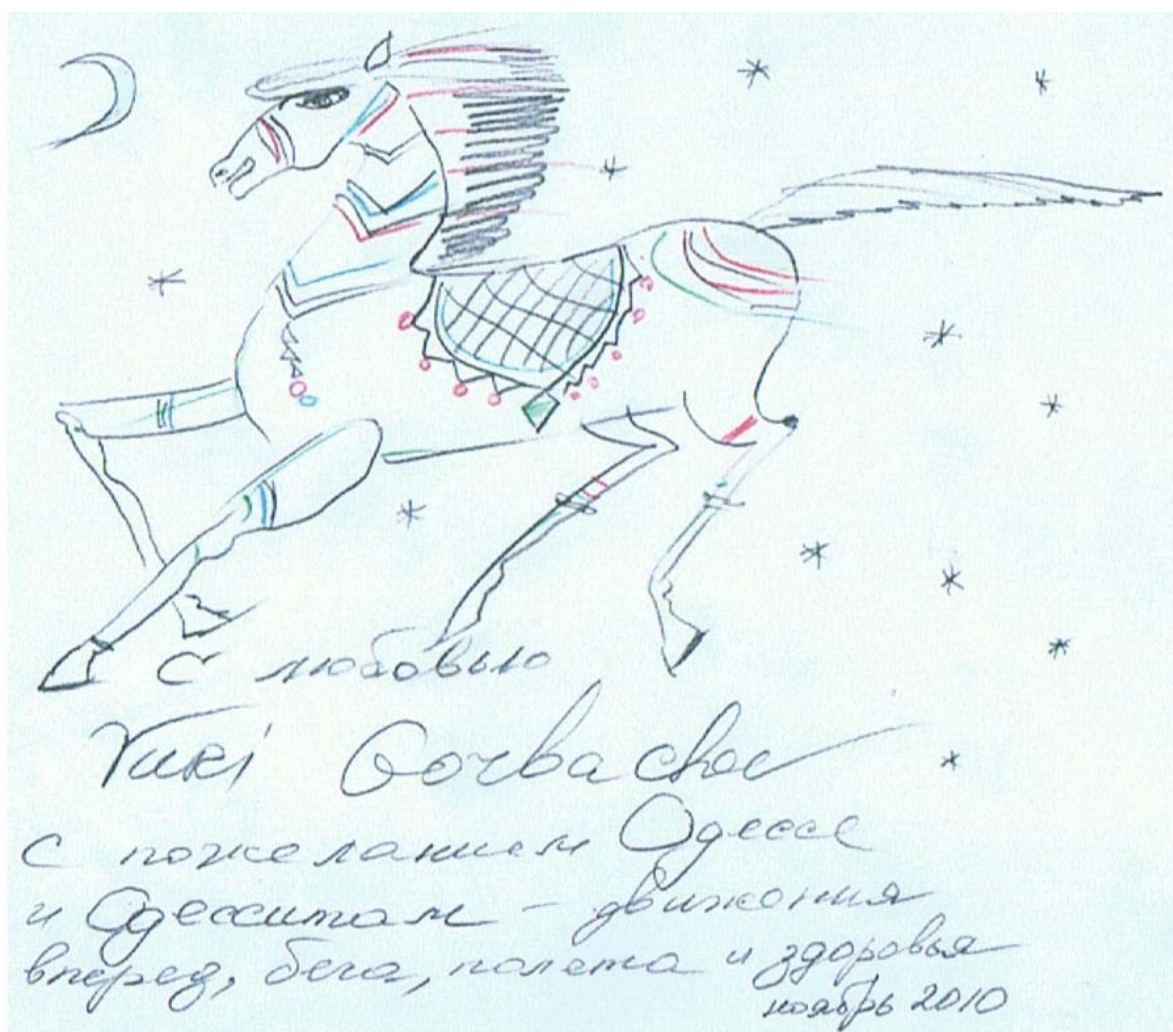 С любовью
Yuri Gorbachev
с пожеланием Одессе
и Одесситам - движения
вперед, бега, полета и здоровья
ноябрь 2010